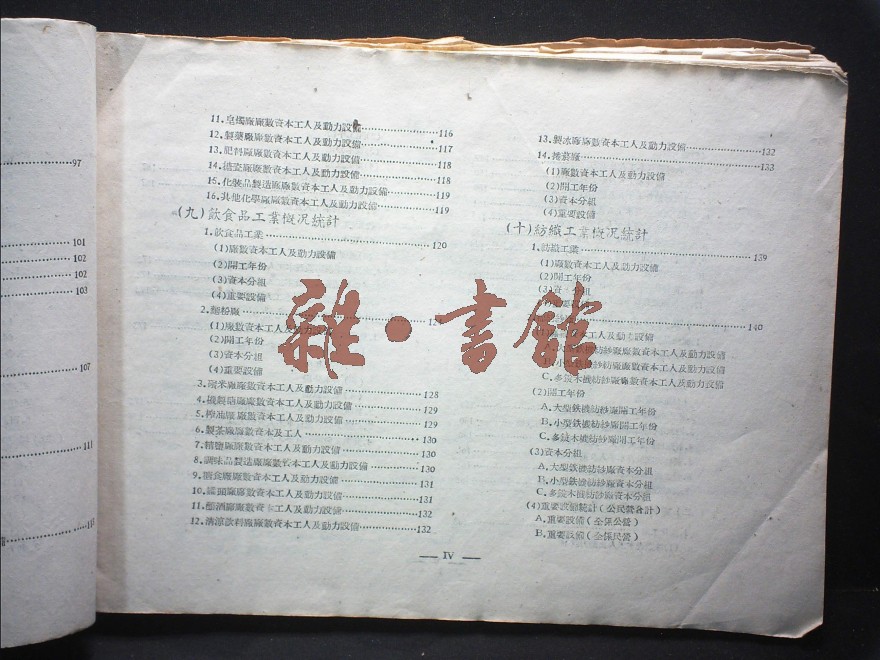 97
101
102
102
103
107
111
11.皂燭廠廠數資本工人及動力設備 116
12.製藥廠廠數資本工人及動力設備 117
13.肥料廠廠數資本工人及動力設備 118
14.搪瓷廠廠數資本工人及動力設備 118
15.化裝品製造廠廠數資本工人及動力設備 119
16.其他化學廠廠數資本工人及動力設備 119
(九)飲食品工業概况統計
1.飲食品工業 120
(1)廠數資本工人及動力設備
(2)開工年份
(3)資本分組
(4)重要設備
2.麵粉廠
(1)廠數資本工人及動力設備
(2)開工年份
(3)資本分組
(4)重要設備
3.碾米廠廠數資本工人及動力設備 128
4.機製糖廠廠數資本工人及動力設備 129
5.榨油廠廠數資本工人及動力設備 129
6.製茶廠廠數資本及工人 130
7.精鹽廠廠數資本工人及動力設備 130
8.調味品製造廠廠數資本工人及動力設備 130
9.罐食廠廠數資本工人及動力設備 131
10.廠數資本工人及動力設備 131
11.釀酒廠廠數資本工人及動力設備 132
12.清涼飲料廠廠數資本工人及動力設備 132
13.製冰廠廠數資本工人及動力設備 132
14.捲菸廠 133
(1)廠數資本工人及動力設備
(2)開工年份
(3)資本分組
(4)重要設備
(十)紡織工業概况統計
1.紡織工業 139
(1)廠數資本工人及動力設備
(2)開工年份
(3)資本分組
140
廠數資本工人及動力設備
A.大型鉄機紡紗廠廠數資本工人及動力設備
B.小型鉄機紡紗廠廠數資本工人及動力設備
C.多錠木機紡紗廠廠數資本工人及動力設備
(2)開工年份
A.大型鉄機紡紗廠開工年份
B.小型鉄機紡紗廠開工年份
C.多錠木機紡紗廠開工年份
(3)資本分組
A.大型鉄機紡紗廠資本分組
B.小型鉄機紡紗廠資本分組
C.多錠木機紡紗廠資本分組
(4)重要設備統計(公民營合計)
A.重要設備(全係公營)
B.重要設備(全係民營)
— IV —
雜·書館